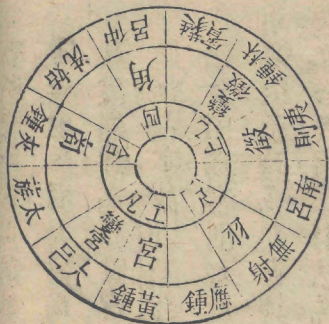 黃鍾
大呂
太蔟
夾鍾
姑洗
仲呂
蕤賓
林鍾
夷則
南呂
無射
應鍾
宮
變宮
商
角
變徵
徵
羽
合
四
乙
上
尺
工
凡